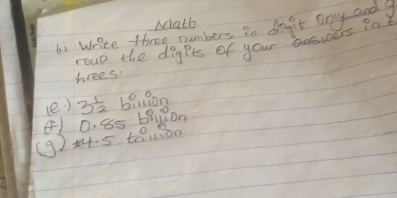 Math
b) Write three numbers in digit only and g
roup the digits of your answers in t
hrees:
(e.) 3½ billion
(f) 0.85 billion
(g) 4.5 trillion